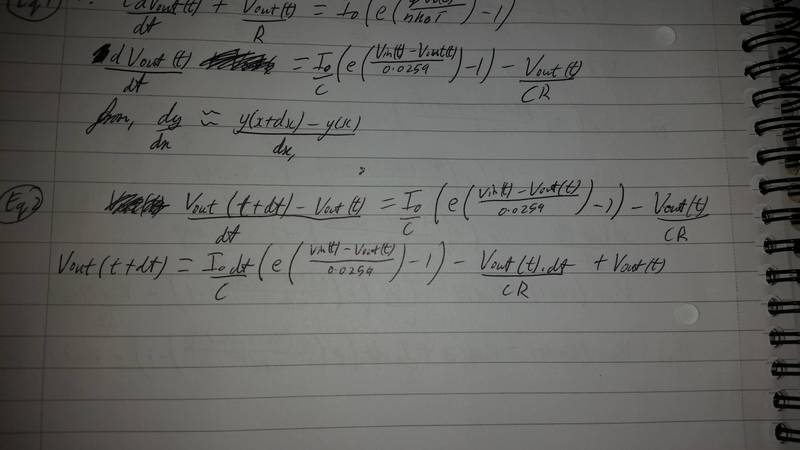 Eq1 C dVout(t)/dt + Vout(t)/R = I₀(e(qVd(t)/nk₀T) - 1)
dVout(t)/dt = I₀/C (e(Vin(t) - Vout(t)/0.0259) - 1) - Vout(t)/CR
from, dy/dx ≈ y(x+dx) - y(x)/dx,
Eq2 Vout(t+dt) - Vout(t)/dt = I₀/C (e(Vin(t) - Vout(t)/0.0259) - 1) - Vout(t)/CR
Vout(t+dt) = I₀dt/C (e(Vin(t) - Vout(t)/0.0259) - 1) - Vout(t).dt/CR + Vout(t)